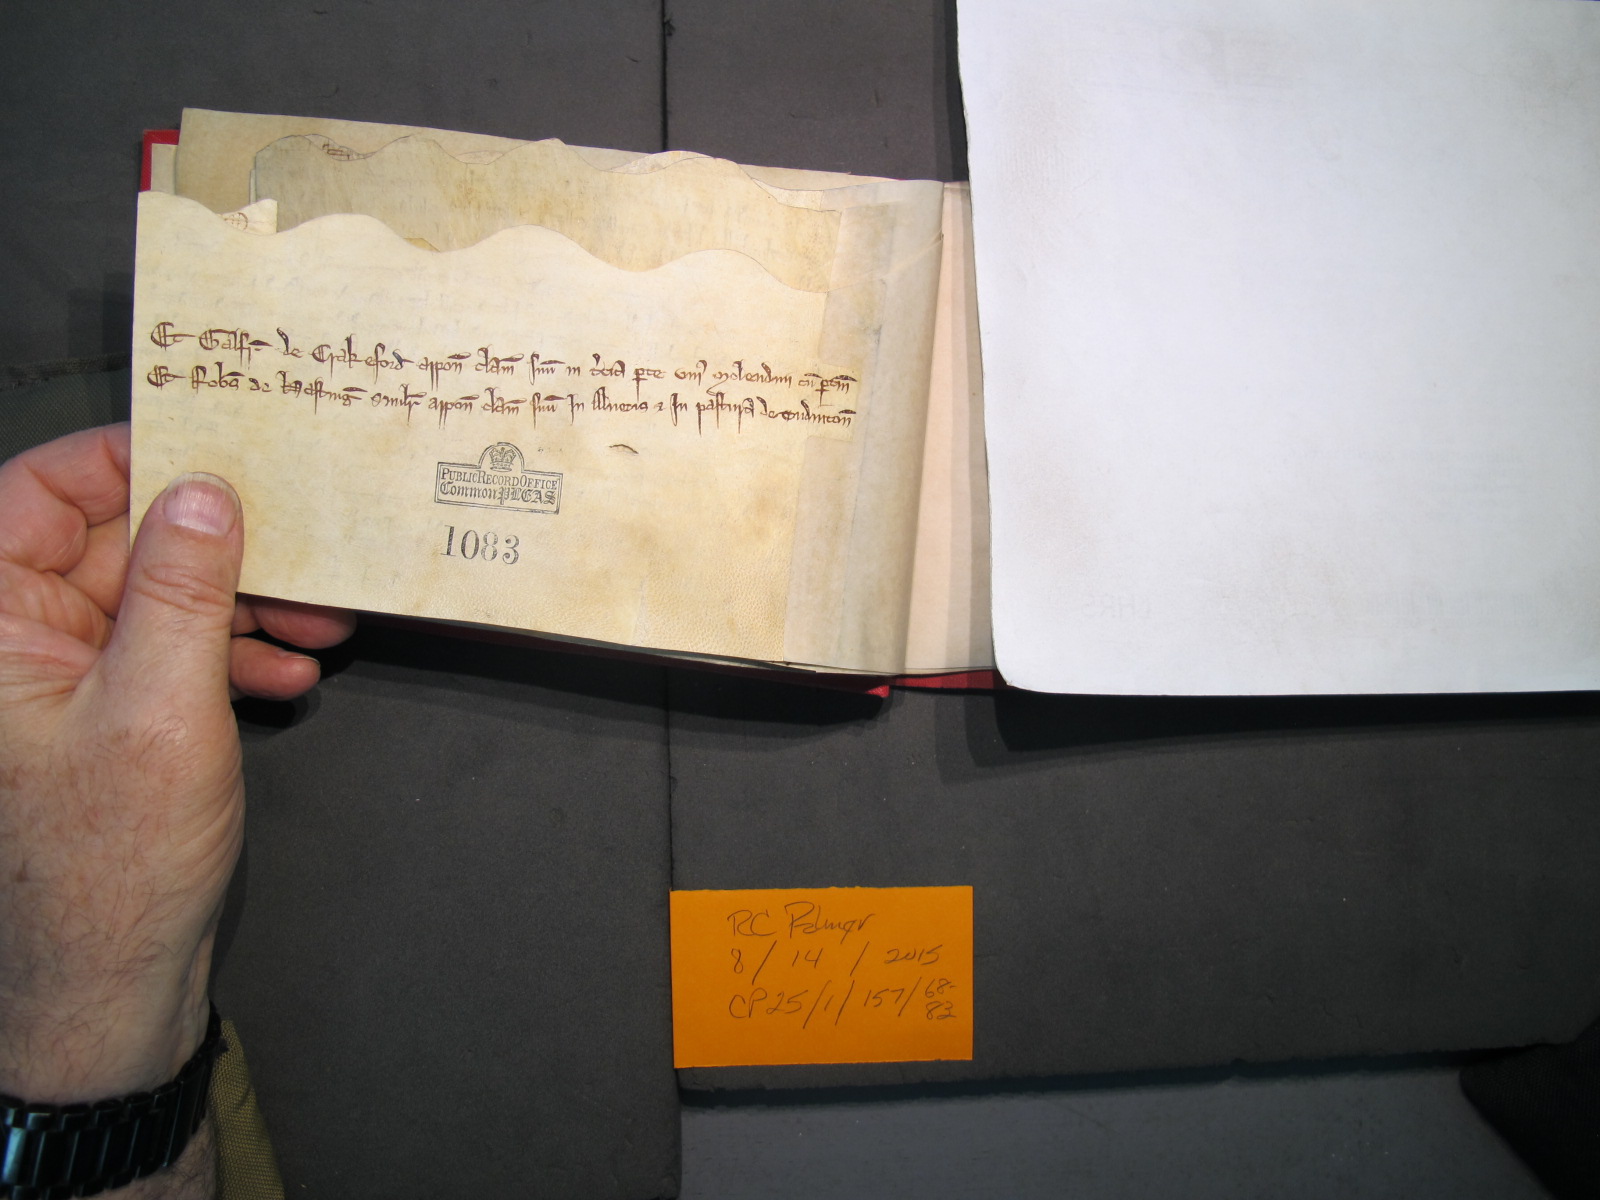 Et Galfr̄ de Crakeford appoń clam̄ suū in t'cia p̱te uni' Molendini cū p̱tiń
Et Rob̄s de Hastinḡ simil'r appoń clam̄ suū In & In pastura de
PUBLIC RECORD OFFICE
Common PLEAS
1083
RC Palmer
8 / 14 / 2015
CP 25/1/157/68-
82